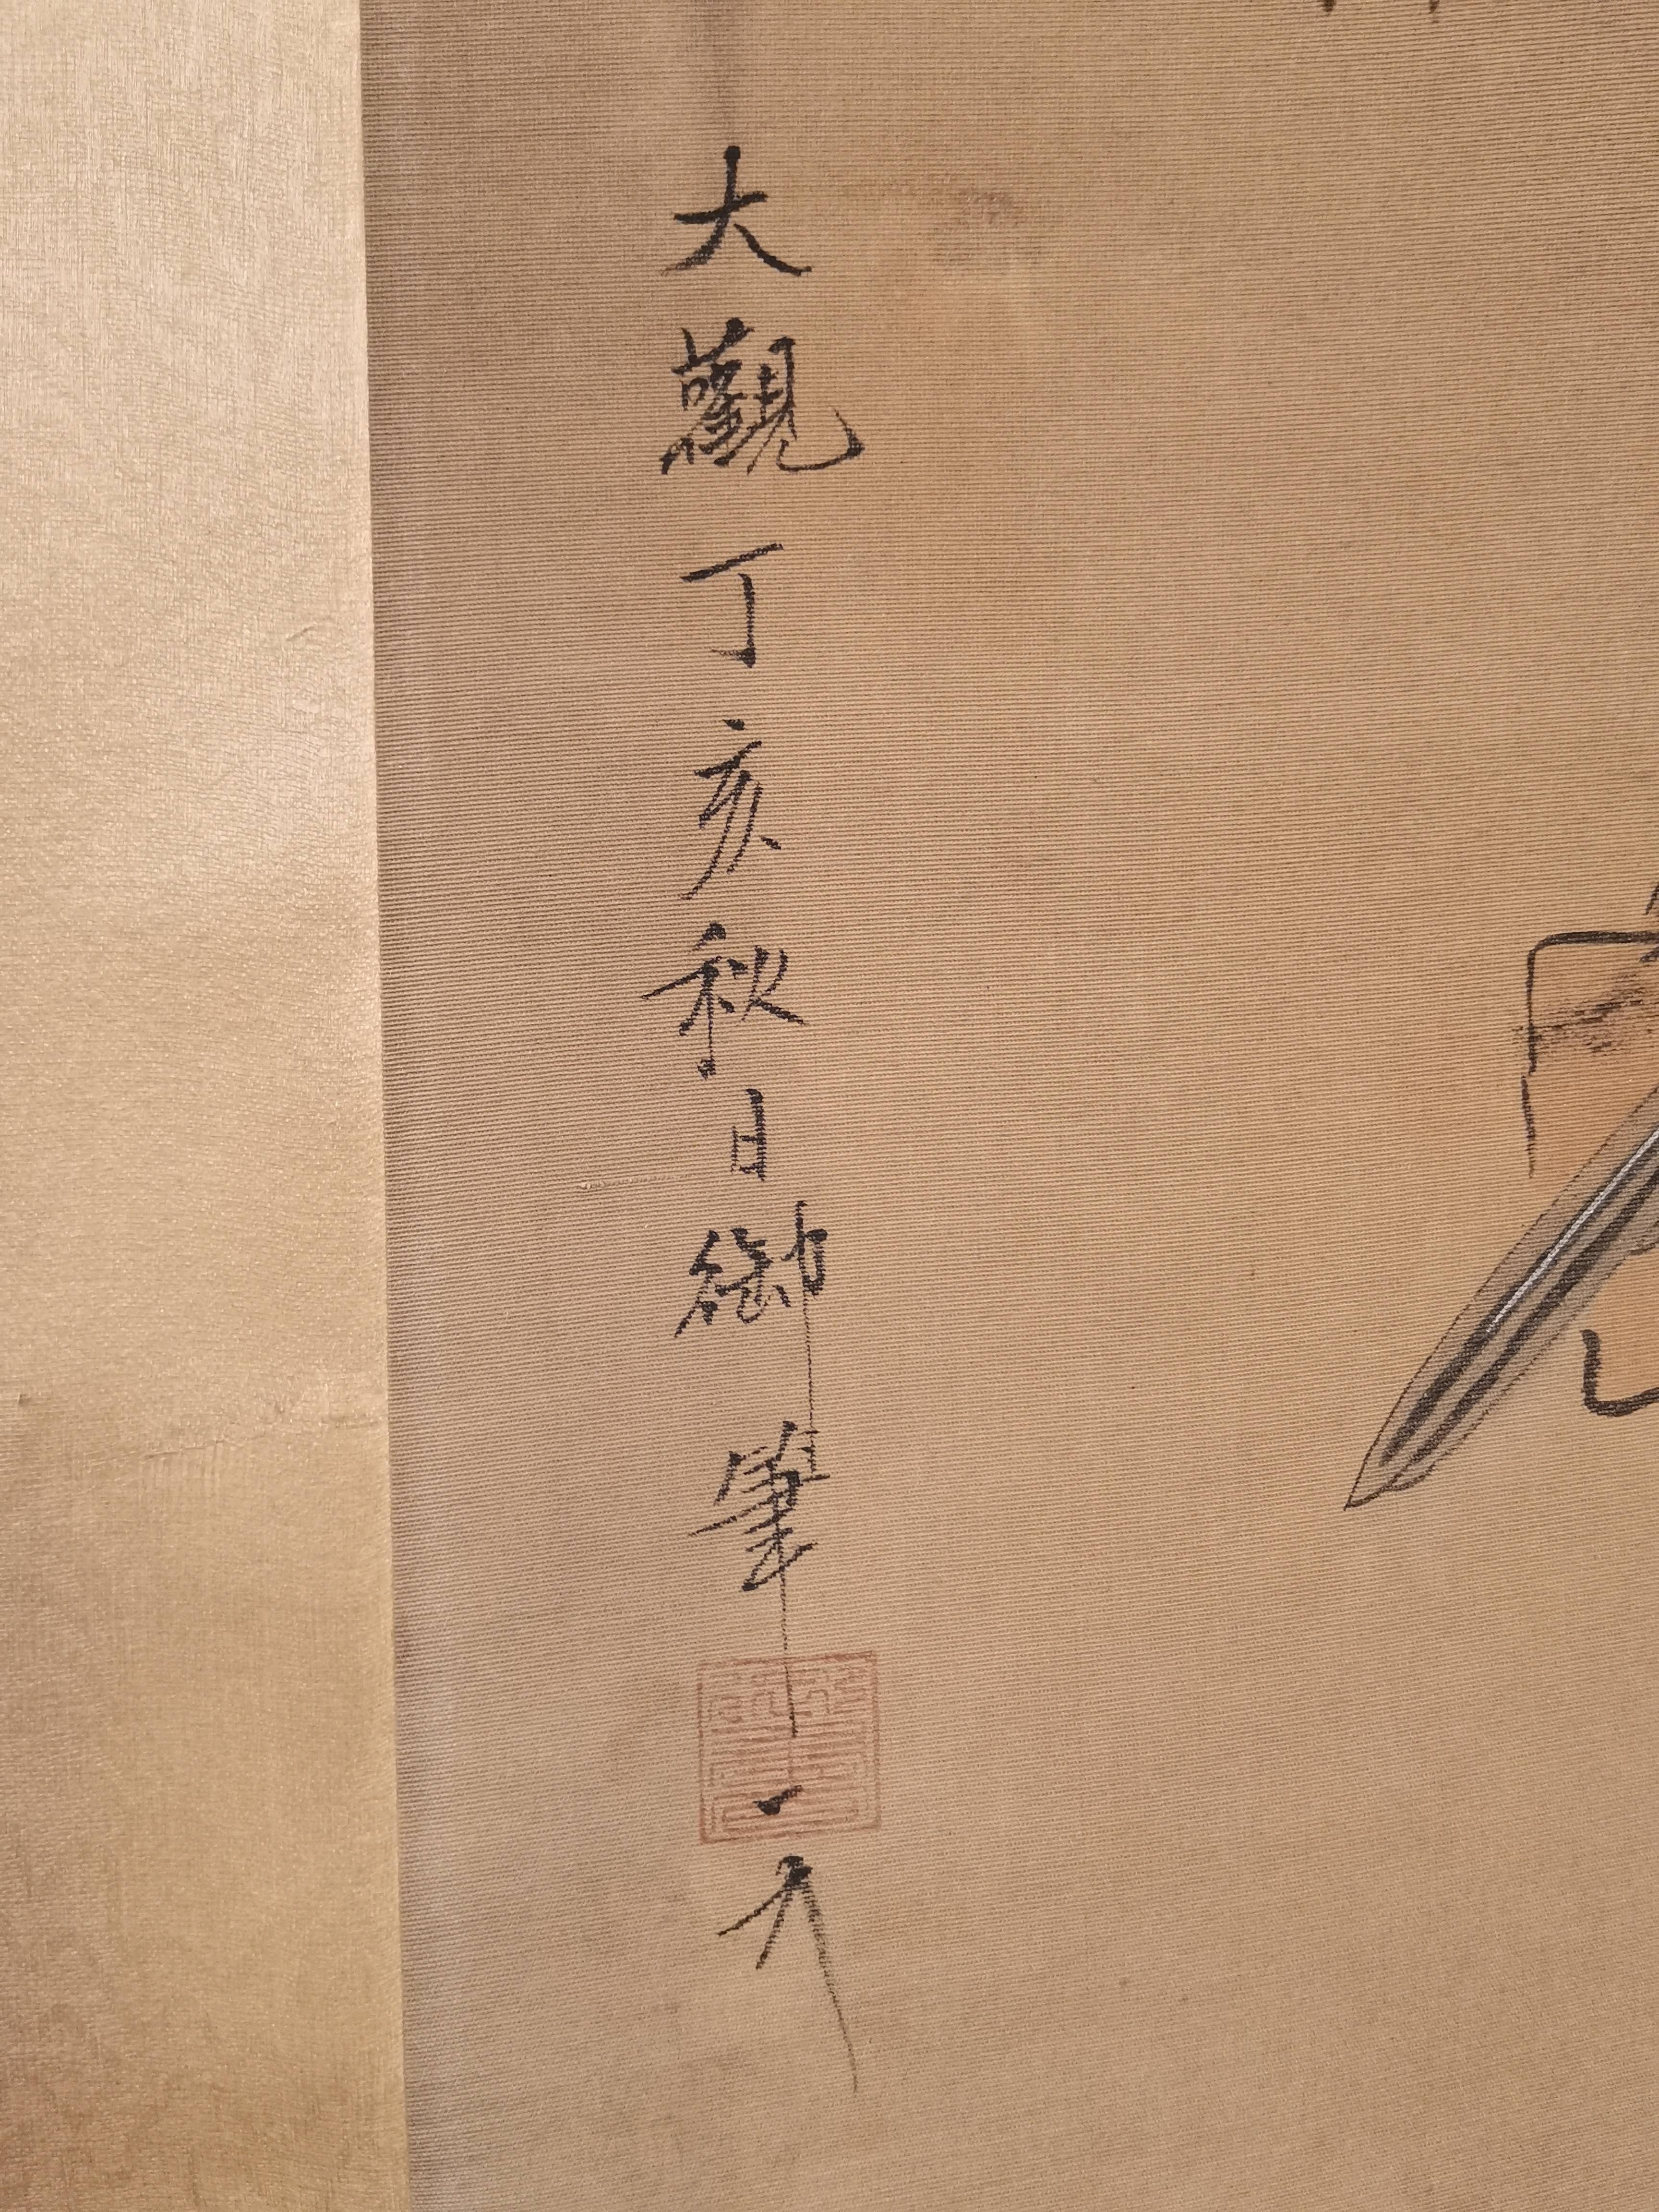 大觀丁亥秋日御筆